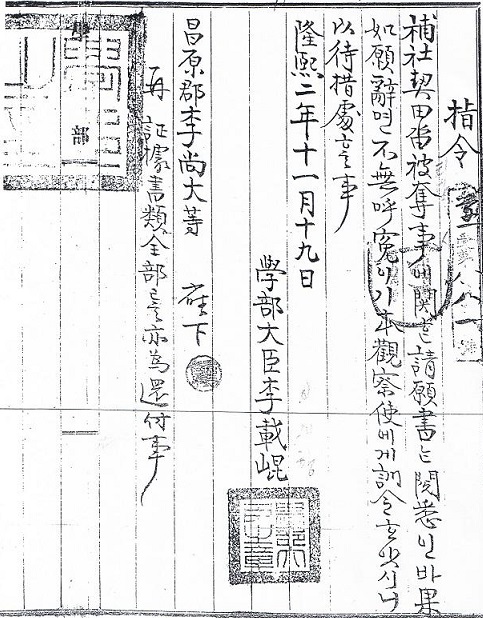 指令
補社契田畓被奪事에關ᄒᆞᆫ請願書ᄂᆞᆫ閱悉인바果
如願辭면不無呼寃이기本觀察使에게訓令ᄒᆞ얏시니
以待措處ᄒᆞᆯ事
隆熙二年十一月十九日
學部大臣李載崐
昌原郡李尙大等 座下
再 証據書類全部ᄂᆞᆫ亦為還付事
學部